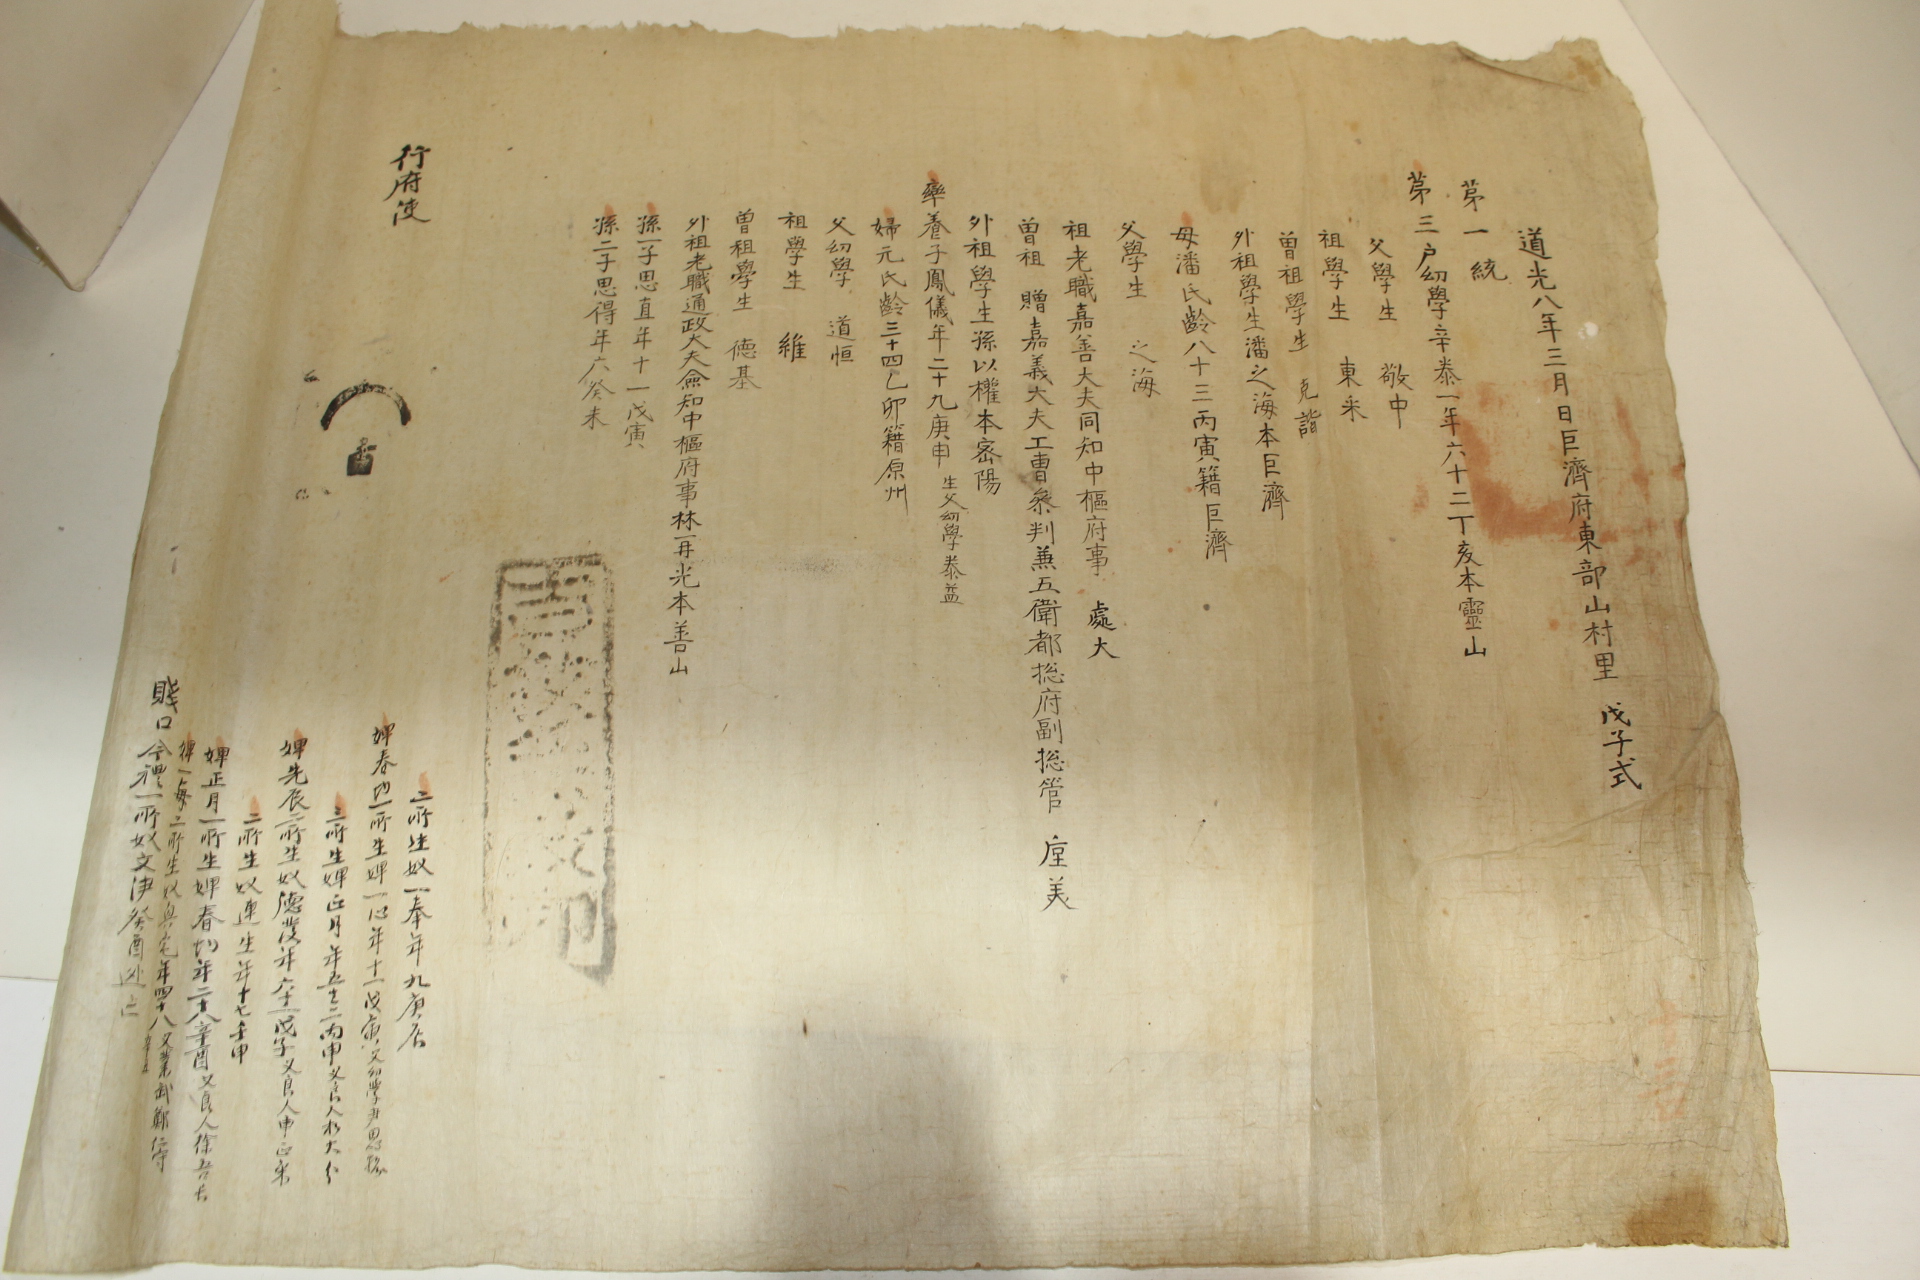 道光八年三月日巨濟府東部山村里 戊子式
第一統
第三户幼學辛泰一年六十二丁亥本靈山
父學生 敬中
祖學生 東采
曾祖學生 克諧
外祖學生潘之海本巨濟
母潘氏齡八十三丙寅籍巨濟
父學生 之海
祖老職嘉善大夫同知中樞府事 處大
曾祖 贈嘉義大夫工曹叅判兼五衛都摠府副摠管 厔美
外祖學生孫以權本密陽
率養子鳳儀年二十九庚申 生父幼學泰益
婦元氏齡三十四乙卯籍原州
父幼學 道恒
祖學生 維
曾祖學生 德基
外祖老職通政大夫僉知中樞府事林再光本善山
孫一子思直年十一戊寅
孫二子思得年六癸未
行府使
二所生奴一奉年九庚辰
婢春切一所生婢一心年十一戊寅父幼學尹思
三所生婢正月年五十三丙申父良人朴大
婢先辰二所生奴德發年六十一戊子父良人申正采
二所生奴連生年十七壬申
婢正月一所生婢春切年二十八辛酉父良人徐
婢一每二所生奴 年四十八 父業武鄭
賤口今禮一所奴文津癸酉逃亡